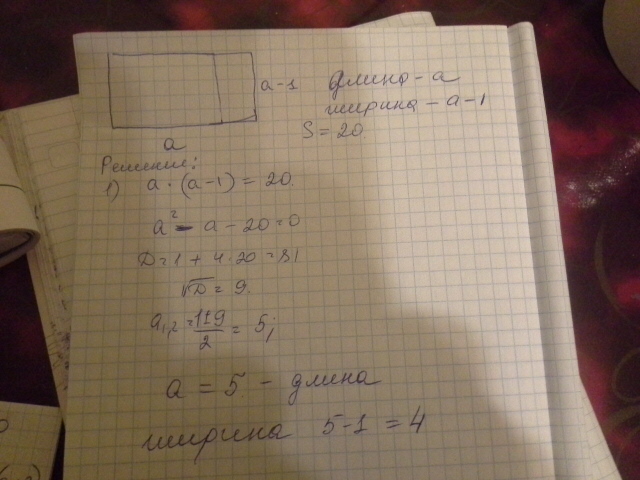 a-1
длина - a
ширина - a-1
S = 20
a
Решение:
1) a · (a-1) = 20.
a² - a - 20 = 0
D = 1 + 4·20 = 81
√D = 9.
a₁,₂ = (1±9)/2 = 5;
a = 5 - длина
ширина 5-1 = 4